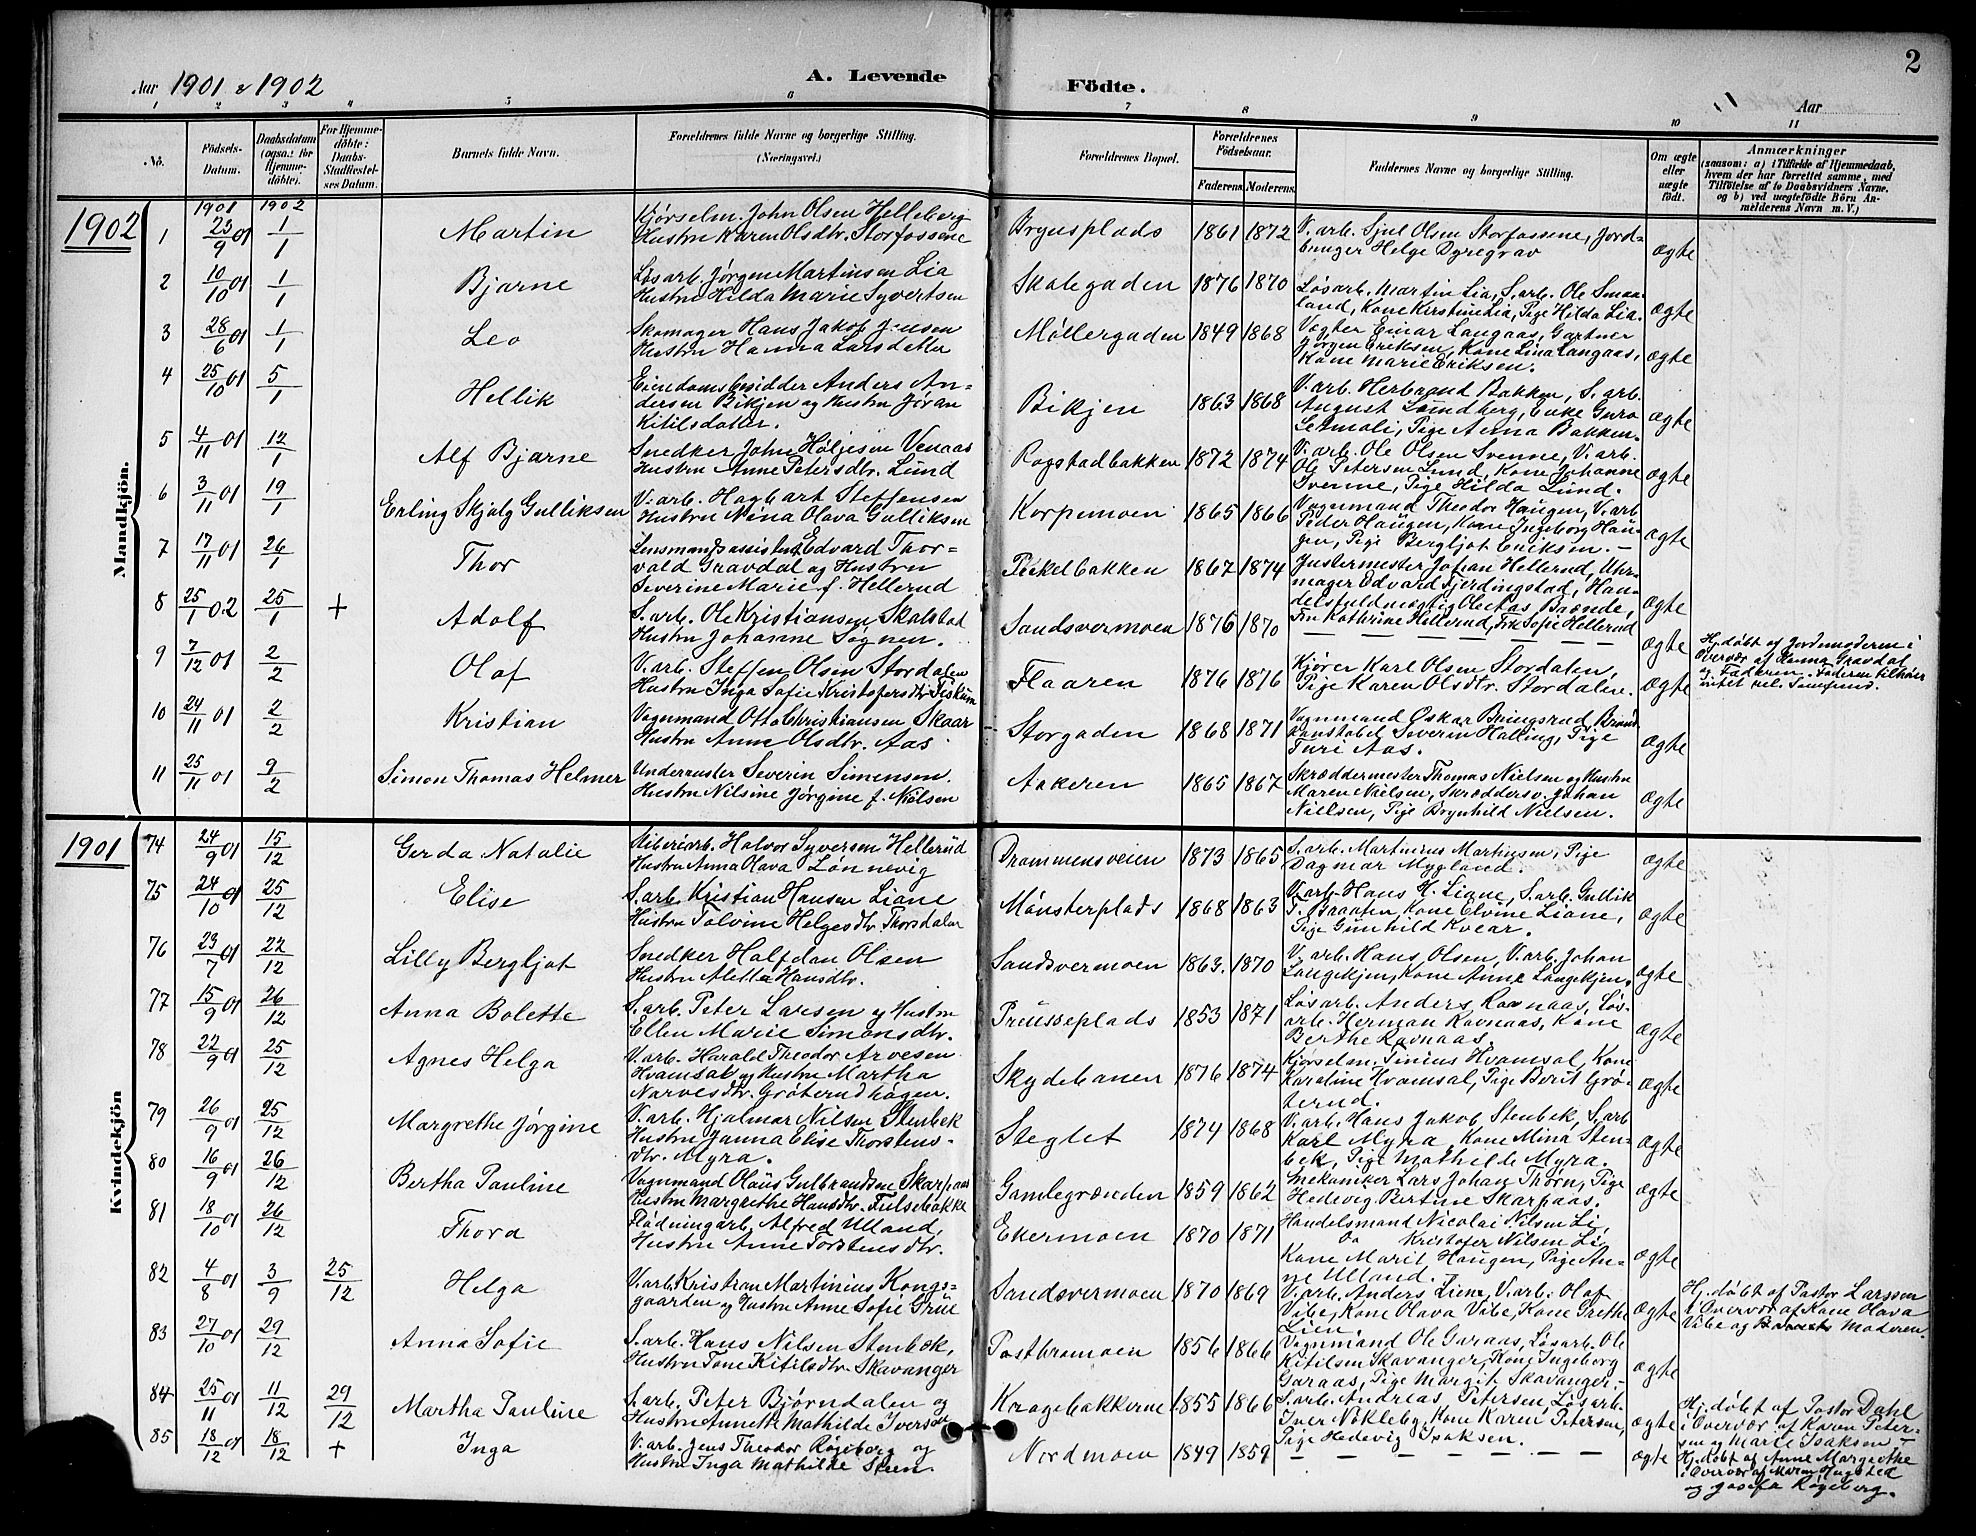 2
Aar 1901 & 1902
A. Levende
Födte.
Aar
1 2 3 4 5 6 7 8 9 10 11
No.
Födsels-Datum.
Daabsdatum (ogsaa: for Hjemme-döbte).
For Hjemme-döbte: Daabs-Stadfæstel-ses Datum.
Barnets fulde Navn.
Forældrenes fulde Navne og borgerlige Stilling. (Næringsvei.)
Forældrenes Bopæl.
Forældrenes Födselsaar.
Faderens. Moderens.
Faddernes Navne og borgerlige Stilling.
Om ægte eller uægte födt.
Anmærkninger
(saasom: a) i Tilfælde af Hjemmedaab,
hvem der har forrettet samme, med
Tilföielse af to Daabsvidners Navne.
og b) ved uægtefödte Börn An-
melderens Navn m. V.)
Mandkjön.
1902
1901 1902
1 23/9 01 1/1 Martin Kjørselm. John Olsen Helleberg
Hustru Karen Olsdtr. Storfossene Brynsplads 1861 1872 V. arb. Sjul Olsen Storfossene, Jord-
bruger Helge Dyregrav ægte
2 10/10 01 1/1 Bjarne Løsarb. Jørgen Martinsen Lia
Hustru Hilda Marie Syvertsen Skolegaden 1876 1870 Løsarb. Martin Lia, S. arb. Ole Smaa-
land, Kone Kirstine Lia, Pige Hilda Lia. ægte
3 28/6 01 1/1 Leo Skomager Hans Jakop Jensen
Hustru Hanna Larsdatter Møllergaden 1849 1868 Vegter Einar Langaas, Gartner
Jørgen Eriksen, Kone Lina Langaas,
Kone Marie Eriksen. ægte
4 25/10 01 5/1 Hellik Eiendomsbesidder Anders An-
dersen Bikjen og Hustru Jøran
Kitilsdatter. Bikjen 1863 1868 V. arb. Herbrand Bakken, S. arb.
August Lundberg, Enke Guro
Pige Anna Bakken. ægte
5 4/11 01 12/1 Alf Bjarne Snedker John Høljesen Venaas
Hustru Anne Petersdtr. Lund Rogstadbakken 1872 1874 V. arb. Ole Olsen Svenne, V. arb.
Ole Petersen Lund, Kone Johanne
Svenne, Pige Hilda Lund. ægte
6 3/11 01 19/1 Erling Skjalg Gulliksen V. arb. Hagbart Steffensen
Hustru Nina Olava Gulliksen Korpemoen 1865 1866 Vognmand Theodor Haugen, V. arb
Peder Haugen, Kone Ingeborg Hau-
gen, Pige Bergljot Eriksen. ægte
7 17/11 01 26/1 Thor Lensmandsassistent Edvard Thor-
vald Gravdal og Hustru
Severine Marie f. Hellerud Pikelbakken 1867 1874 Justermester Johan Hellerud, Uhr-
mager Edvard Fjerdingstad, Han-
delsfuldmægtig Ole Aas, Brænde,
Fru Kathrine Hellerud, Frk Sofie Hellerud ægte
8 25/1 02 25/1 + Adolf S. arb. Ole Kristiansen Skalstad
Hustru Johanne Sognen. Sandsvermoen 1876 1870 — — — — — ægte Hj. døbt af Jordmoderen i
Overvær af Hanna Gravdal
og Faderen. Faderen tilhører
intet rel. Samfund.
9 7/12 01 2/2 Olaf V. arb. Steffen Olsen Stordalen
Hustru Inga Sofie Kristofersdtr. Fiskum Flaaren 1876 1876 Kjører Karl Olsen Stordalen,
Pige Karen Olsdtr. Stordalen. ægte
10 24/11 01 2/2 Kristian Vognmand Otto Christiansen Skaar
Hustru Anne Olsdtr. Aas. Storgaden 1868 1871 Vognmand Oskar Bingsrud, Brand-
konstabel Severin Halling, Pige
Turi Aas. ægte
11 25/11 01 9/2 Simon Thomas Helmer Underruster Severin Simensen.
Hustru Nilsine Jørgine f. Nielsen Aakeren 1865 1867 Skræddermester Thomas Nielsen og Hustru
Maren Nielsen, Skræddersv. Johan
Nielsen, Pige Brynhild Nielsen. ægte
Kvindekjön
1901
74 24/9 01 15/12 Gerda Natalie Sliberiarb. Halvor Syversen Hellerud
Hustru Anna Olava Lønnevig Drammensveien 1873 1865 S. arb. Martinius Martinsen, Pige
Dagmar Mygland. ægte
75 24/10 01 25/12 Elise S. arb. Kristian Hansen Liane
Hustru Tolvine Helgesdtr. Thorsdalen Mønsterplads 1868 1863 V. arb. Hans H. Liane, S. arb. Gullik
T. Kone Elvine Liane,
Pige Gunhild Kvear. ægte
76 23/7 01 22/12 Lilly Bergljot Snedker Halfdan Olsen
Hustru Aletta Hansdtr. Sandsvermoen 1863. 1870 V. arb. Hans Olsen, V. arb. Johan
Langekjen, Kone Anne Langekjen. ægte
77 15/9 01 26/12 Anna Bolette S. arb. Peter Larsen og Hustru
Ellen Marie Simonsdtr. Preusseplads 1853 1871 Løsarb. Anders Ravnaas, Løs-
arb. Herman Ravnaas, Kone
Berthe Ravnaas. ægte
78 22/9 01 25/12 Agnes Helga V. arb. Harald Theodor Arvesen
Hvamsal og Hustru Martha
Narvesdtr. Grøterudhagen. Skydebanen 1876 1874 Kjørselm. Tinius Hvamsal, Kone
Karoline Hvamsal, Pige Berit Grø-
terud. ægte
79 26/9 01 25/12 Margrethe Jørgine V. arb. Hjalmar Nilsen Stenbek
Hustru Janna Elise Thorstens-
dtr. Myra. Steglet 1874 1868 V. arb. Hans Jakob Stenbek, S. arb
Karl Myra, Kone Mina Sten-
bek, Pige Mathilde Myra. ægte
80 16/9 01 26/12 Bertha Pauline Vognmand Olaus Gulbrandsen Skarpaas
Hustru Margrethe Hansdtr. Fulsebakke Gamlegrænden 1859 1862 Mekaniker Lars Johan Thorn, Pige
Hedevig Bertine Skarpaas. ægte
81 18/10 01 26/12 Thora Flødningarb. Alfred Uland,
Hustru Anne Torstensdtr. Ekermoen 1870 1871 Handelsmand Nicolai Nilsen Li,
Do Kristofer Nilsen Li
Kone Marit Haugen, Pige An-
ne Uland. ægte
82 4/8 01 3/9 25/12 Helga V. arb. Kristian Martinius Kongs-
gaarden og Hustru Anne Sofie Grue Sandsvermoen 1870 1869 V. arb. Anders Lien, V. arb. Olaf
Vibe, Kone Olava Vibe, Kone Grethe
Lien. ægte Hj. døbt af Pastor Larssen
i Overvær af Kone Olava
Vibe og Barnets Moderen.
83 27/10 01 29/12 Anna Sofie S. arb. Hans Nilsen Stenbek,
Hustru Tone Kitilsdtr. Skavanger Pastbromoen 1856 1866 Vognmand Ole Garaas, Løsarb. Ole
Kitilsen Skavanger, Kone Ingeborg
Garaas, Pige Margit Skavanger. ægte
84 25/11 01 11/12 29/12 Martha Pauline S. arb. Peter Bjørndalen og
Hustru Annette Mathilde Iversen Kragebakkerne 1855 1866 S. arb. Andreas Petersen, Løsarb.
Iver Nikleby, Kone Karen Petersen,
Pige Hedevig Isaksen. ægte Hj. døbt af Pastor Dahl
i Overvær af Karen Peter-
sen og Marie Isaksen
85 18/12 01 18/12 + Inga V. arb. Jens Theodor Røgeberg og
Hustru Inga Mathilde Steen. Nordmoen 1849 1859 — — — — — ægte Hj. døbt af Anne Margrethe
i Overvær af Maren
og Josefa Røgeberg.